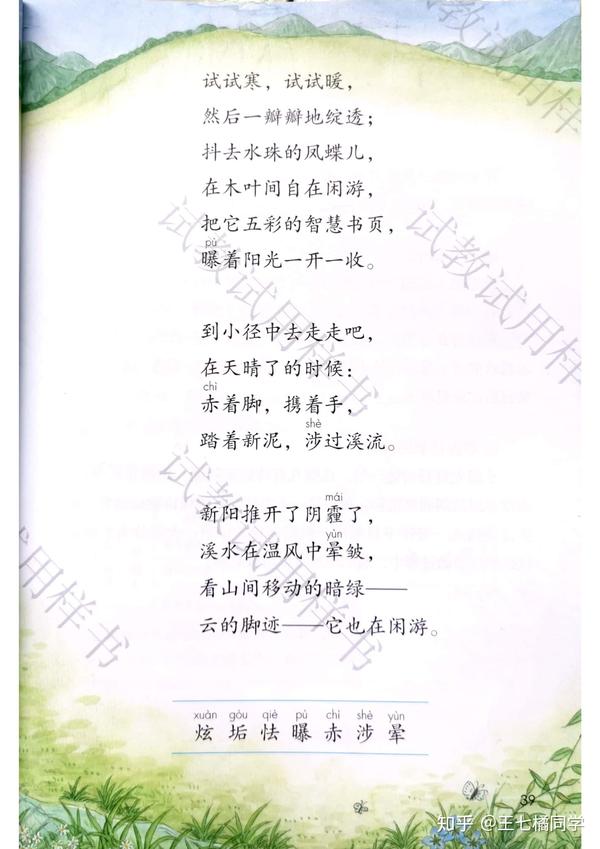 试试寒，试试暖，
然后一瓣瓣地绽透；
抖去水珠的凤蝶儿，
在木叶间自在闲游，
把它五彩的智慧书页，
pù
曝着阳光一开一收。
到小径中去走走吧，
在天晴了的时候：
chì
赤着脚，携着手，
shè
踏着新泥，涉过溪流。
mái
新阳推开了阴霾了，
yùn
溪水在温风中晕皱，
看山间移动的暗绿——
云的脚迹——它也在闲游。
xuàn gòu qiè pù chì shè yùn
炫 垢 怯 曝 赤 涉 晕
39
知乎 @王七橘同学
试教试用样书
试教试用样书
试教试用样书
试教试用样书
试用样书